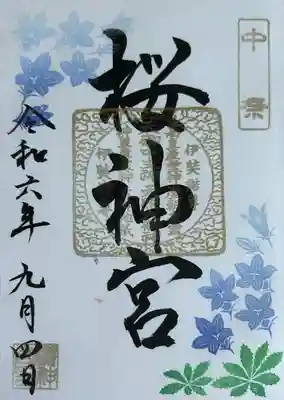 中祭
桜神宮
令和六年 九月四日